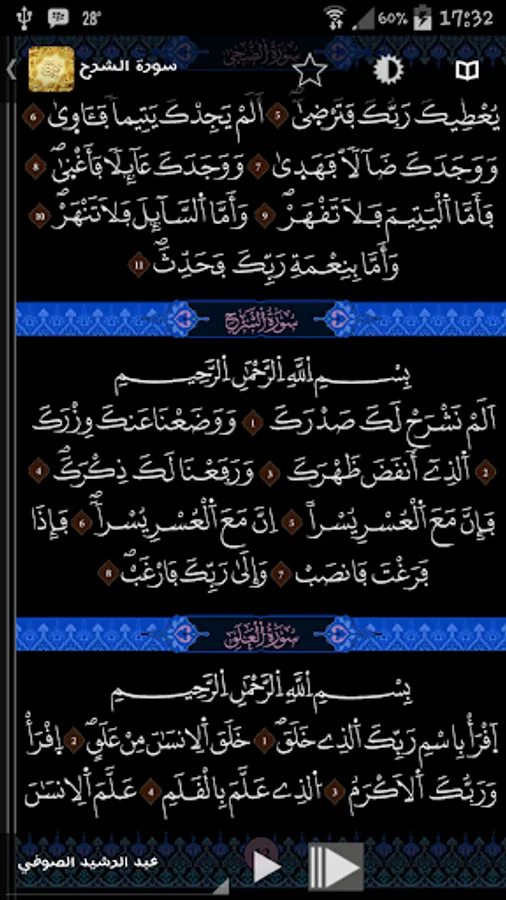 28° 60% 17:32
سُورَةُ الضُّحَىٰ
سورة الشرح
يُعْطِيكَ رَبُّكَ فَتَرْضَىٰٓ 5 أَلَمْ يَجِدْكَ يَتِيماً فَـَٔاوَىٰ 6
وَوَجَدَكَ ضَآلّاً فَهَدَىٰ 7 وَوَجَدَكَ عَآئِلاً فَأَغْنَىٰ 8
فَأَمَّا اَ۬لْيَتِيمَ فَلَا تَقْهَرْ 9 وَأَمَّا اَ۬لسَّآئِلَ فَلَا تَنْهَرْ 10
وَأَمَّا بِنِعْمَةِ رَبِّكَ فَحَدِّثْ 11
سُورَةُ الشَّرْحِ
بِسْمِ اِ۬للَّهِ اِ۬لرَّحْمَٰنِ اِ۬لرَّحِيمِ
أَلَمْ نَشْرَحْ لَكَ صَدْرَكَ 1 وَوَضَعْنَا عَنكَ وِزْرَكَ
2 اَ۬لذِےٓ أَنقَضَ ظَهْرَكَ 3 وَرَفَعْنَا لَكَ ذِكْرَكَ 4
فَإِنَّ مَعَ اَ۬لْعُسْرِ يُسْراً 5 اِنَّ مَعَ اَ۬لْعُسْرِ يُسْراً 6 فَإِذَا
فَرَغْتَ فَانصَبْ 7 وَإِلَىٰ رَبِّكَ فَارْغَب 8
سُورَةُ الْعَلَقِ
بِسْمِ اِ۬للَّهِ اِ۬لرَّحْمَٰنِ اِ۬لرَّحِيمِ
اِقْرَأْ بِاسْمِ رَبِّكَ اَ۬لذِے خَلَقَ 1 خَلَقَ اَ۬لِانسَٰنَ مِنْ عَلَقٍ 2 اِقْرَأْ
وَرَبُّكَ اَ۬لَاكْرَمُ 3 اُ۬لذِے عَلَّمَ بِالْقَلَمِ 4 عَلَّمَ اَ۬لِانسَٰنَ
عبد الرشيد الصوفي